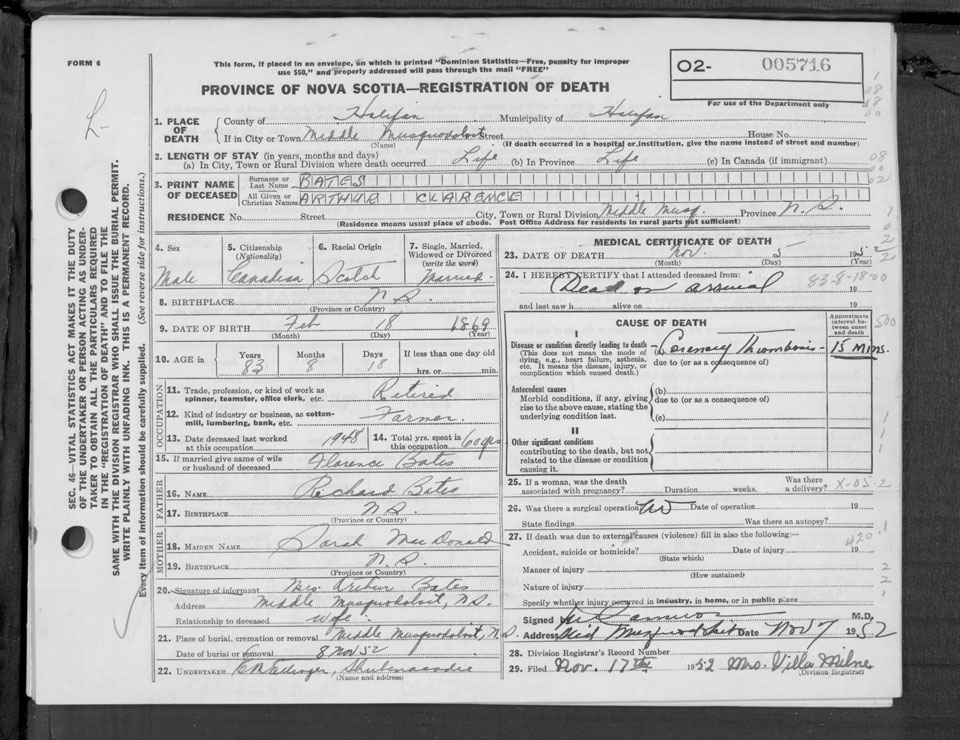 FORM 6
This form, if placed in an envelope, on which is printed "Dominion Statistics—Free, penalty for improper
use $50," and properly addressed will pass through the mail "FREE"
O2- 005716
PROVINCE OF NOVA SCOTIA—REGISTRATION OF DEATH
For use of the Department only
1. PLACE OF DEATH County of Halifax Municipality of Halifax
If in City or Town Middle Musquodoboit Street House No.
(Name) (If death occurred in a hospital or institution, give the name instead of street and number)
2. LENGTH OF STAY (in years, months and days)
(a) In City, Town or Rural Division where death occurred Life (b) In Province Life (c) In Canada (if immigrant)
3. PRINT NAME OF DECEASED Surname or Last Name BATES
All Given or Christian Names ARTHUR CLARENCE
RESIDENCE No. Street City, Town or Rural Division Middle Musq. Province N.S.
(Residence means usual place of abode. Post Office Address for residents in rural parts not sufficient)
4. Sex 5. Citizenship (Nationality) 6. Racial Origin 7. Single, Married, Widowed or Divorced (write the word)
Male Canadian Scotch Married.
8. BIRTHPLACE N.S.
(Province or Country)
9. DATE OF BIRTH Feb 18 1869
(Month) (Day) (Year)
10. AGE in Years Months Days If less than one day old
83 8 18 hrs. or min.
OCCUPATION
11. Trade, profession, or kind of work as spinner, teamster, office clerk, etc. Retired
12. Kind of industry or business, as cotton-mill, lumbering, bank, etc. Farmer.
13. Date deceased last worked at this occupation 1948 14. Total yrs. spent in this occupation 60 yrs
15. If married give name of wife or husband of deceased Florence Bates
FATHER
16. NAME Richard Bates
17. BIRTHPLACE N.S.
(Province or Country)
MOTHER
18. MAIDEN NAME Sarah MacDonald
19. BIRTHPLACE N.S.
(Province or Country)
20. Signature of informant Mrs Arthur Bates
Address Middle Musquodoboit, N.S.
Relationship to deceased Wife.
21. Place of burial, cremation or removal Middle Musquodoboit, N.S.
Date of burial or removal 8 Nov 52
22. UNDERTAKER Ettinger, Shubenacadie
(Name and address)
MEDICAL CERTIFICATE OF DEATH
23. DATE OF DEATH Nov. 5 1952
(Month) (Day) (Year)
24. I HEREBY CERTIFY that I attended deceased from:
Dead on arrival 19
83-8-18-00
and last saw h alive on 19
CAUSE OF DEATH
Approximate interval between onset and death
I
Disease or condition directly leading to death (a) Coronary Thrombosis 15 mins.
(This does not mean the mode of dying, e.g., heart failure, asthenia, etc. It means the disease, injury, or complication which caused death.)
due to (or as a consequence of)
Antecedent causes
Morbid conditions, if any, giving rise to the above cause, stating the underlying condition last.
(b)
due to (or as a consequence of)
(c)
II
Other significant conditions
contributing to the death, but not related to the disease or condition causing it.
25. If a woman, was the death associated with pregnancy? Duration weeks. Was there a delivery? X-05-2
26. Was there a surgical operation? No Date of operation 19
State findings Was there an autopsy?
27. If death was due to external causes (violence) fill in also the following:—
Accident, suicide or homicide? Date of injury 19
(State which)
420
Manner of injury
(How sustained)
Nature of injury
Specify whether injury occurred in industry, in home, or in public place
Signed M.D.
Address Mid Musquodoboit Date Nov 7 1952
28. Division Registrar's Record Number
29. Filed Nov. 17th 1952 Mrs. Villa Milne
(Division Registrar)
SEC. 46—VITAL STATISTICS ACT MAKES IT THE DUTY
OF THE UNDERTAKER OR PERSON ACTING AS UNDER-
TAKER TO OBTAIN ALL THE PARTICULARS REQUIRED
IN THE "REGISTRATION OF DEATH" AND TO FILE THE
SAME WITH THE DIVISION REGISTRAR WHO SHALL ISSUE THE BURIAL PERMIT.
WRITE PLAINLY WITH UNFADING INK. THIS IS A PERMANENT RECORD.
Every item of information should be carefully supplied. (See reverse side for instructions.)